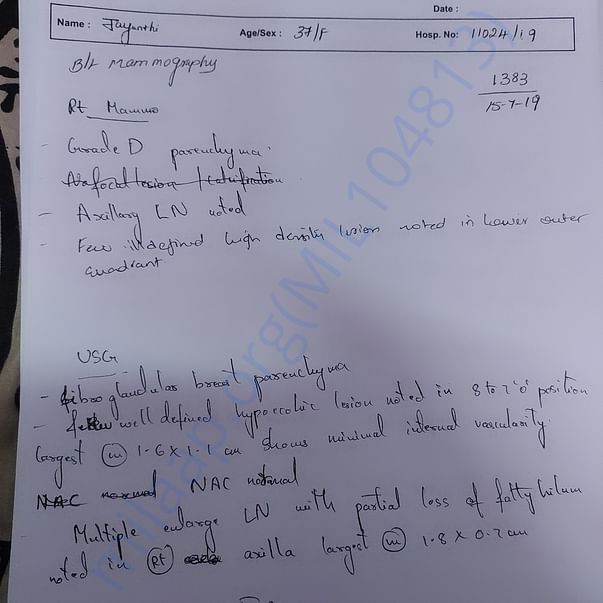 Date :
Name : Jayanthi Age/Sex : 37/F Hosp. No: 11024/19
B/L Mammography
1383
15-7-19
Rt Mammo
- Grade D parenchyma
No focal lesion / calcification
- Axillary LN noted
- Few illdefined high density lesion noted in lower outer
quadrant
USG
- fibroglandular breast parenchyma
- few well defined hypoechoic lesion noted in 8 to 7 'o' position
largest (m) 1.6 x 1.1 cm shows minimal internal vascularity
NAC normal NAC normal
Multiple enlarge LN with partial loss of fatty hilum
noted in (Rt) axilla largest (m) 1.8 x 0.7 cm
milaap.org(MIL104813)